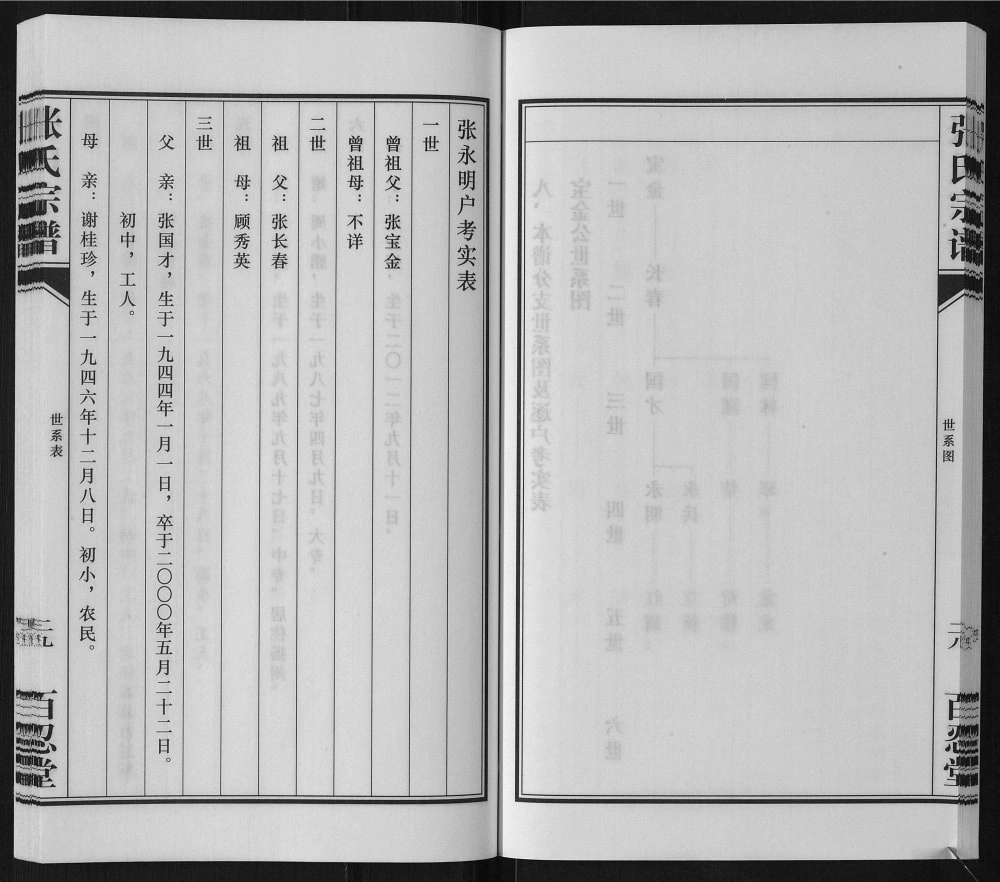 张氏宗谱
世系图
二八
百忍堂
张永明户考实表
一世
曾祖父：张宝金
曾祖母：不详
二世
祖　父：张长春
祖　母：顾秀英
三世
父　亲：张国才，生于一九四四年一月一日，卒于二〇〇〇年五月二十二日。
初中，工人。
母　亲：谢桂珍，生于一九四六年十二月八日。初小，农民。
张氏宗谱
世系表
二九
百忍堂